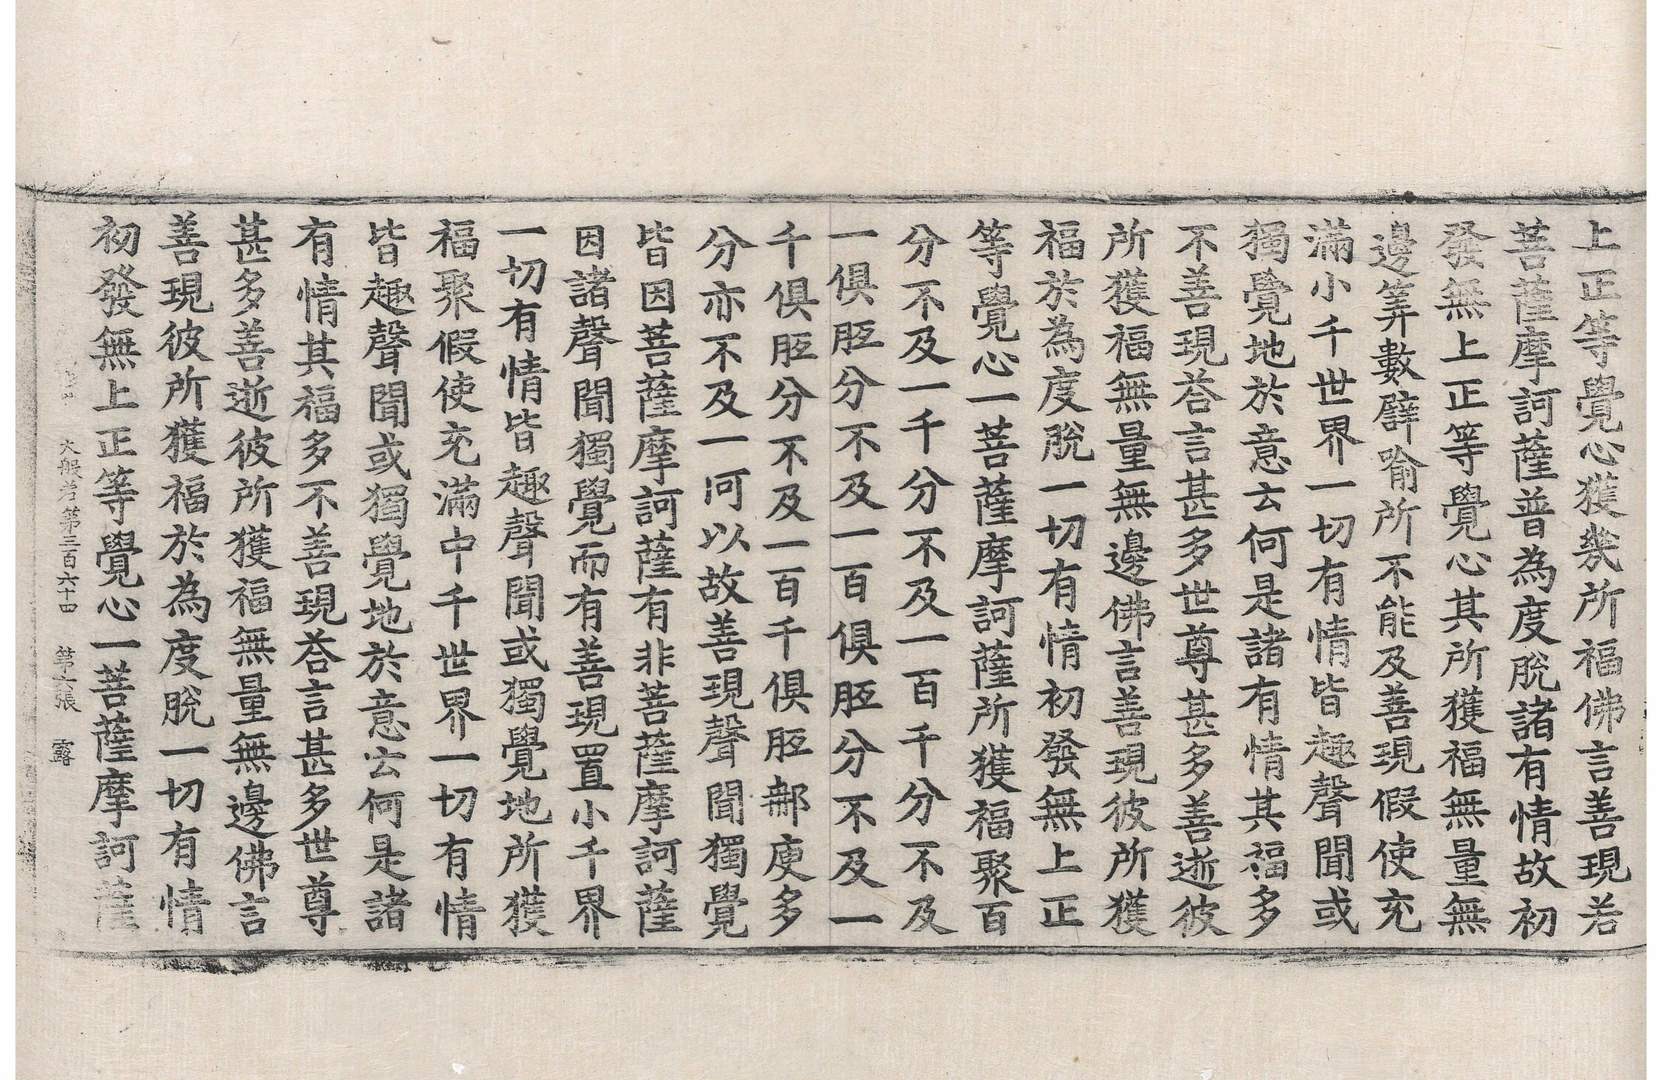 上正等覺心獲幾所福佛言善現若
菩薩摩訶薩普為度脫諸有情故初
發無上正等覺心其所獲福無量無
邊筭數譬喻所不能及善現假使充
滿小千世界一切有情皆趣聲聞或
獨覺地於意云何是諸有情其福多
不善現荅言甚多世尊甚多善逝彼
所獲福無量無邊佛言善現彼所獲
福於為度脫一切有情初發無上正
等覺心一菩薩摩訶薩所獲福聚百
分不及一千分不及一百千分不及
一俱胝分不及一百俱胝分不及一
千俱胝分不及一百千俱胝那庾多
分亦不及一何以故善現聲聞獨覺
皆因菩薩摩訶薩有非菩薩摩訶薩
因諸聲聞獨覺而有善現置小千界
一切有情皆趣聲聞或獨覺地所獲
福聚假使充滿中千世界一切有情
皆趣聲聞或獨覺地於意云何是諸
有情其福多不善現荅言甚多世尊
甚多善逝彼所獲福無量無邊佛言
善現彼所獲福於為度脫一切有情
初發無上正等覺心一菩薩摩訶薩
大般若第三百六十四 第六張 露